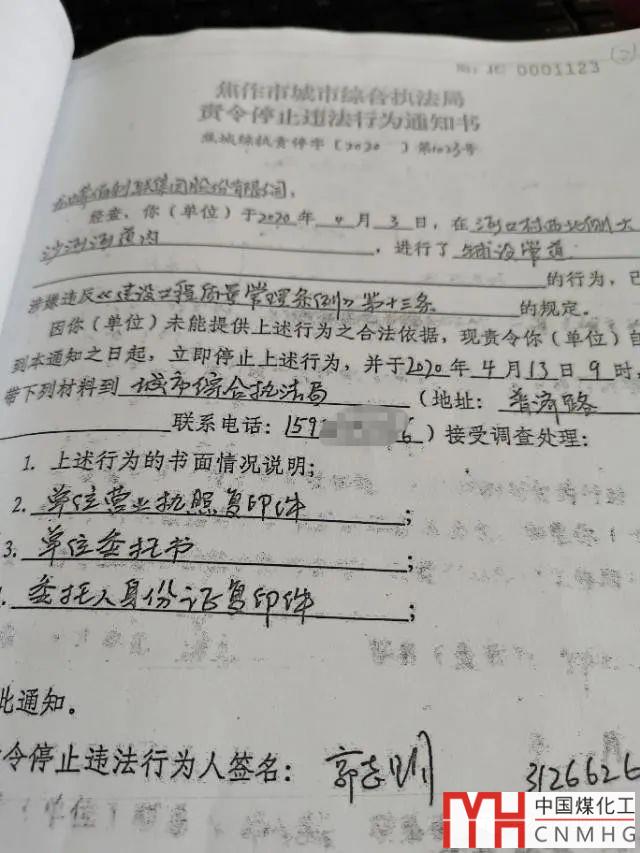 No: JC 0001123
②
焦作市城市综合执法局
责令停止违法行为通知书
焦城综执责停字〔2020 〕第1023号
佰利联集团股份有限公司:
经查,你(单位)于2020年4月3日,在河口村西北侧大
沙河河道内,进行了铺设管道
的行为,已
涉嫌违反《建设工程质量管理条例》第十三条的规定。
因你(单位)未能提供上述行为之合法依据,现责令你(单位)自
到本通知之日起,立即停止上述行为,并于2020年4月13日9时,
带下列材料到城市综合执法局(地址:普济路
联系电话:159 6)接受调查处理:
1. 上述行为的书面情况说明;
2. 单位营业执照复印件;
3. 单位委托书;
委托人身份证复印件;
此通知。
令停止违法行为人签名:郭 3126626
MH 中国煤化工
CNMHG